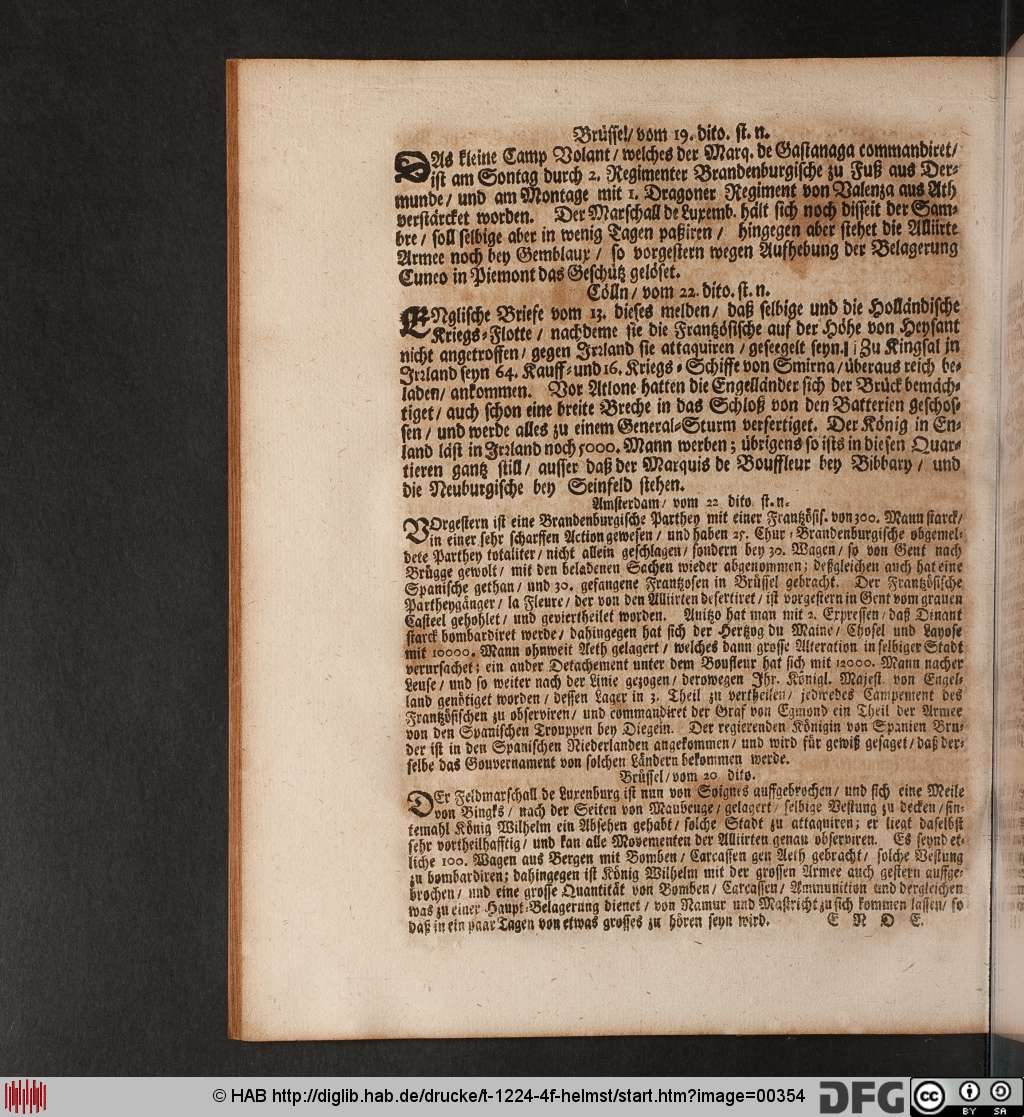 Brüssel/ vom 19. dito. st. n.
DAs kleine Camp Volant / welches der Marq. de Gastanaga commandiret/
ist am Sontag durch 2. Regimenter Brandenburgische zu Fuß aus Der-
munde / und am Montage mit 1. Dragoner Regiment von Valenza aus Ath
verstärcket worden. Der Marschall de Luxemb. hält sich noch disseit der Sam-
bre / soll selbige aber in wenig Tagen paßiren / hingegen aber stehet die Alliirte
Armee noch bey Gemblaux / so vorgestern wegen Aufhebung der Belagerung
Cuneo in Piemont das Geschütz gelöset.
Cölln / vom 22. dito. st. n.
ENglische Briefe vom 13. dieses melden / daß selbige und die Holländische
Kriegs-Flotte / nachdeme sie die Frantzösische auf der Höhe von Heysant
nicht angetroffen / gegen Irrland sie attaquiren / geseegelt seyn. Zu Kingsal in
Irrland seyn 64. Kauff- und 16. Kriegs-Schiffe von Smirna / überaus reich be-
laden / ankommen. Vor Atlone hatten die Engelländer sich der Brück bemäch-
tiget / auch schon eine breite Breche in das Schloß von den Batterien geschos-
sen / und werde alles zu einem General-Sturm verfertiget. Der König in En-
land läst in Irrland noch 5000. Mann werben ; übrigens so ists in diesen Quar-
tieren gantz still / ausser daß der Marquis de Bouffleur bey Bibbary / und
die Neuburgische bey Seinfeld stehen.
Amsterdam / vom 22 dito st. n.
VOrgestern ist eine Brandenburgische Parthey mit einer Frantzösis. von 300. Mann starck/
in einer sehr scharffen Action gewesen / und haben 25. Chur-Brandenburgische obgemel-
dete Parthey totaliter / nicht allein geschlagen / sondern bey 30. Wagen / so von Gent nach
Brügge gewolt / mit den beladenen Sachen wieder abgenommen ; deßgleichen auch hat eine
Spanische gethan / und 30. gefangene Frantzosen in Brüssel gebracht. Der Frantzösische
Partheygänger / la Fleure / der von den Alliirten desertiret / ist vorgestern in Gent vom grauen
Casteel gehohlet / und geviertheilet worden. Anitzo hat man mit 2. Expressen / daß Dinant
starck bombardiret werde / dahingegen hat sich der Hertzog du Maine / Chosel und Layose
mit 10000. Mann ohnweit Aeth gelagert / welches dann grosse Alteration in selbiger Stadt
verursachet ; ein ander Detachement unter dem Boufleur hat sich mit 12000. Mann nacher
Leuse / und so weiter nach der Linie gezogen / derowegen Ihr. Königl. Majest. von Engel-
land genötiget worden / dessen Lager in 3. Theil zu vertheilen / jedwedes Campement des
Frantzösischen zu observiren / und commandiret der Graf von Egmond ein Theil der Armee
von den Spanischen Trouppen bey Diegein. Der regierenden Königin von Spanien Bru-
der ist in den Spanischen Niederlanden angekommen / und wird für gewiß gesaget / daß der-
selbe das Gouvernament von solchen Ländern bekommen werde.
Brüssel / vom 20 dito.
DEr Feldmarschall de Luxenburg ist nun von Soignes auffgebrochen / und sich eine Meile
von Bingks / nach der Seiten von Maubeuge / gelagert / selbige Vestung zu decken / sin-
temahl König Wilhelm ein Absehen gehabt / solche Stadt zu attaquiren ; er liegt daselbst
sehr vortheilhafftig / und kan alle Movementen der Alliirten genau observiren. Es seynd et-
liche 100. Wagen aus Bergen mit Bomben / Carcassen gen Aeth gebracht / solche Vestung
zu bombardiren ; dahingegen ist König Wilhelm mit der grossen Armee auch gestern auffge-
brochen / und eine grosse Quantität von Bomben / Carcassen / Ammunition und dergleichen
was zu einer Haupt-Belagerung dienet / von Namur und Mastricht zu sich kommen lassen / so
daß in ein paar Tagen von etwas grosses zu hören seyn wird. E N D E.
© HAB http://diglib.hab.de/drucke/t-1224-4f-helmst/start.htm?image=00354
DFG
cc
BY SA